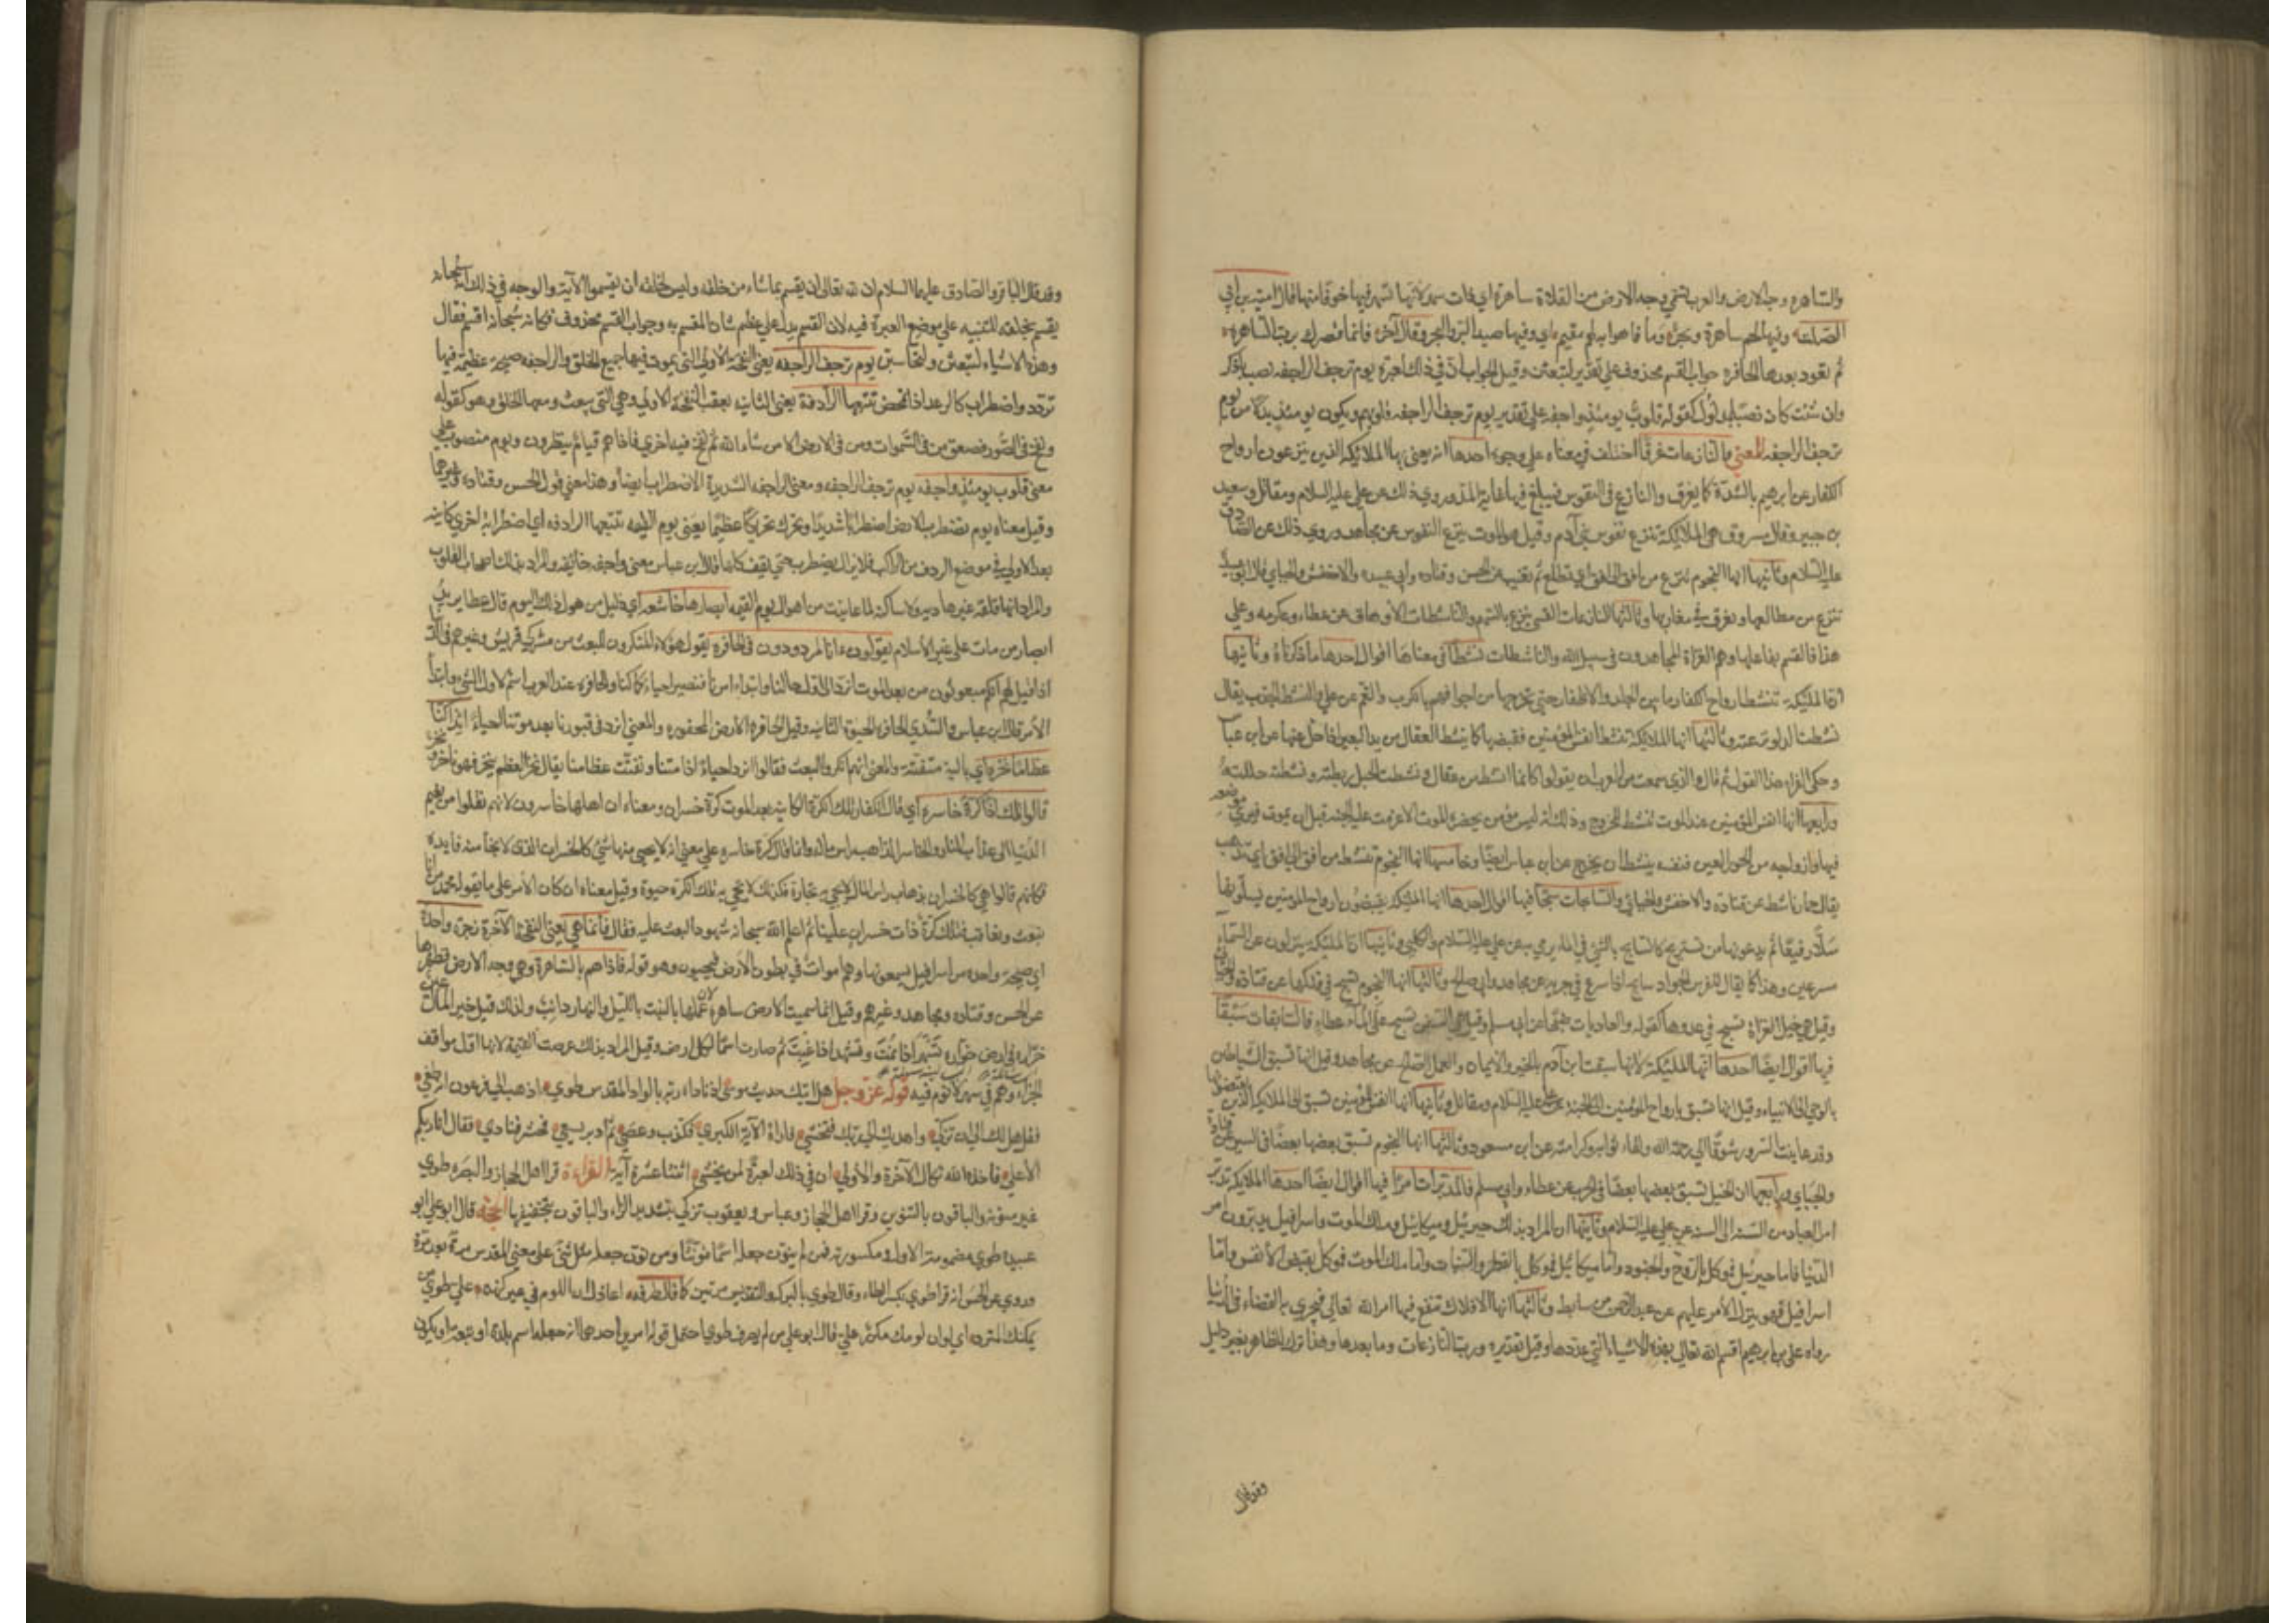 والساهرة وجه الارض والعرب تسمي وجه الارض من الفلاة ساهرة اي ذات سهر لانها تسهر فيها خوفا منها قال امية بن ابي
الصلت وفيها لحم ساهرة وبحر وما فاهوا به لهم مقيم اي وفيها صيد البر والبحر وقال آخر فانما قصرك ترب الساهرة
ثم تعود بعدها في الحافرة جواب القسم محذوف علي تقدير لتبعثن وقيل الجواب ان في ذلك لعبرة يوم ترجف الراجفة نصب باذكر
وان شئت كان نصبا بمدلول قوله قلوب يومئذ واجفة علي تقدير يوم ترجف الراجفة قلوبهم ويكون يومئذ بدلا من يوم
ترجف الراجفة المعني والنازعات غرقا اختلف في معناه علي وجوه احدها انه يعني بها الملائكة الذين ينزعون ارواح
الكفار عن ابدانهم بالشدة كما يغرق النازع في القوس فيبلغ فيها غاية المد وروي ذلك عن علي عليه السلام ومقاتل وسعيد
بن جبير وقال مسروق هي الملائكة تنزع نفوس بني آدم وقيل هو الموت ينزع النفوس عن مجاهد وروي ذلك عن الصادق
عليه السلام وثانيها انها النجوم تنزع من افق الي افق اي تطلع ثم تغيب عن الحسن وقتاده وابي عبيده والاخفش والجبائي قال ابو عبيدة
تنزع من مطالعها وتغرق في مغاربها وثالثها النازعات القسي تنزع بالسهم والناشطات الاوهاق عن عطاء وعكرمه وعلي
هذا فالقسم بفاعلها وهم الغزاة المجاهدون في سبيل الله والناشطات نشطا في معناها اقوال احدها ما ذكرناه وثانيها
ان الملئكة تنشط ارواح الكفار ما بين الجلد والاظفار حتي تخرجها من اجوافهم بالكرب والغم عن علي والنشط الجذب يقال
نشطت الدلو نزعته وثالثها انها الملائكة تنشط انفس المؤمنين فتقبضها كما ينشط العقال من يد البعير اذا حل عنها عن ابن عباس
وحكي الفراء هذا القول ثم قال والذي سمعت من العرب ان يقولوا كانما انشط من عقال ونشطت الحبل ربطته وانشطته حللته
ورابعها انها انفس المؤمنين عند الموت تنشط للخروج وذلك انه ليس مؤمن يحضره الموت الا عرضت عليه الجنة قبل ان يموت فيري موضعه
فيها وازواجه من الحور العين فنفسه ينشط ان يخرج عن ابن عباس ايضا وخامسها انها النجوم تنشط من افق الي افق اي تذهب
يقال حمار ناشط عن قتاده والاخفش والجبائي والسابحات سبحا فيها اقوال احدها انها الملئكة يقبضون ارواح المؤمنين يسلونها
سلا رفيقا ثم يدعونها حتي تستريح كالسابح بالشئ في الماء يرمي به عن علي عليه السلام والكلبي وثانيها ان الملئكة ينزلون عن السماء
مسرعين وهذا كما يقال للفرس الجواد سابح اذا اسرع في جريه عن مجاهد وابي صالح وثالثها انها النجوم تسبح في فلكها عن قتاده والجبائي
وقيل هي خيل الغزاة تسبح في عدوها كقوله والعاديات ضبحا عن ابي مسلم وقيل هي السفن تسبح علي الماء عن عطاء فالسابقات سبقا
فيها اقوال ايضا احدها انها الملئكة لانها سبقت ابن آدم بالخير والايمان والعمل الصالح عن مجاهد وقيل انها تسبق الشياطين
بالوحي الي الانبياء وقيل انها تسبق بارواح المؤمنين الي الجنة عن علي عليه السلام ومقاتل وثانيها انها انفس المؤمنين تسبق الي الملائكة الذين يقبضونها
وقد عاينت السرور شوقا الي رحمة الله ولقاء ثوابه وكرامته عن ابن مسعود وثالثها انها النجوم تسبق بعضها بعضا في السير عن قتادة
والجبائي ورابعها انها الخيل تسبق بعضها بعضا في الحرب عن عطاء وابي مسلم فالمدبرات امرا فيها اقوال ايضا احدها الملائكة تدبر
امر العباد من السنة الي السنة عن علي عليه السلام وثانيها ان المراد بذلك جبرئيل وميكائيل وملك الموت واسرافيل يدبرون امر
الدنيا فاما جبرئيل فموكل بالروح والجنود واما ميكائيل فموكل بالقطر والنبات واما ملك الموت فموكل بقبض الانفس واما
اسرافيل فهو ينزل بالامر عليهم عن عبد الرحمن بن سابط وثالثها انها الافلاك تقع فيها امر الله تعالي فيجري بها القضاء في الدنيا
رواه علي بن ابرهيم اقسم الله تعالي بهذه الاشياء التي عددها وقيل تقديره ورب النازعات وما بعدها وهذا ترك الظاهر بغير دليل
وقد قال
وقد قال الباقر والصادق عليهما السلام ان لله تعالي ان يقسم بما شاء من خلقه وليس لخلقه ان يقسموا الا به والوجه في ذلك انه سبحانه
يقسم بخلقه للتنبيه علي موضع العبرة فيه لان القسم يدل علي عظم شان المقسم به وجواب القسم محذوف فكانه سبحانه اقسم فقال
وهذه الاشياء لتبعثن ولتحاسبن يوم ترجف الراجفه يعني النفخة الاولي التي يموت فيها جميع الخلق والراجفه صيحة عظيمة فيها
تردد واضطراب كالرعد اذا تمخض تتبعها الرادفة يعني الثانيه تعقب النفخة الاولي وهي التي يبعث معها الخلق وهو كقوله
ونفخ في الصور فصعق من في السموات ومن في الارض الا من شاء الله ثم نفخ فيه اخري فاذا هم قيام ينظرون ويوم منصوب علي
معني قلوب يومئذ واجفه يوم ترجف الراجفه ومعني الراجفه الشديدة الاضطراب ايضا وهذا معني قول الحسن وقتاده وغيرهما
وقيل معناه يوم تضطرب الارض اضطرابا شديدا وتحرك تحريكا عظيما يعني يوم القيمه تتبعها الرادفه اي اضطرابة اخري كاينه
بعد الاولي في موضع الردف من الراكب فلا يزال يضطرب حتي يفني كلها قال ابن عباس معني واجفه خائفه والمراد بذلك اصحاب القلوب
والمراد انها قلقه غير هاديه ولا ساكنة لما عاينت من اهوال يوم القيمه ابصارها خاشعه اي ذليل من هول ذلك اليوم قال عطا يريد
ابصار من مات علي غير الاسلام يقولون ءانا لمردودون في الحافرة يقول هؤلاء المنكرون للبعث من مشركي قريش وغيرهم في الدنيا
اذا قيل لهم انكم مبعوثون من بعد الموت انرد الي اول حالنا وابتداء امرنا فنصير احياء كما كنا والحافره عند العرب اسم لاول الشئ وابتداء
الامر قال ابن عباس والسدي الحافرة الحيوة الثانيه وقيل الحافره الارض المحفوره والمعني انرد في قبورنا بعد موتنا احياء ائذا كنا
عظاما نخرة اي بالية متفتتة والمعني انهم انكروا البعث فقالوا انرد احياء اذا متنا وتفتتت عظامنا يقال نخر العظم ينخر فهو ناخر ونخر
قالوا تلك اذا كرة خاسره اي قال الكفار تلك الكرة الكاينه بعد الموت كرة خسران ومعناه ان اهلها خاسرون لانهم نقلوا من نعيم
الدنيا الي عذاب النار والخاسر الذاهب راس ماله وانما قال كرة خاسره علي معني انه لا يجي منها شئ كالخسران الذي لا يجئ منه فايده
فكانهم قالوا هي كالخسران بذهاب راس المال لا يجي به تجارة فكذلك لا تجي بتلك الكرة حيوة وقيل معناه ان كان الامر علي ما يقوله محمد من انا
نبعث ونعاقب فتلك كرة ذات خسران علينا ثم اعلم الله سبحانه سهولة البعث عليه فقال فانما هي يعني النفخة الآخرة زجرة واحدة
اي صيحة واحدة من اسرافيل يسمعونها وهم اموات في بطون الارض فيحيون وهو قوله فاذا هم بالساهرة وهي وجه الارض وظهرها
عن الحسن وقتاده ومجاهد وغيرهم وقيل انما سميت الارض ساهرة لان عملها بالنبت بالليل والنهار دائب ولذلك قيل خير المال عين
خرارة في ارض خواره تسهر اذا نمت وتشهد اذا غبت ثم صارت اسما لكل ارض وقيل المراد بذلك عرصة القيمة لانها اول مواقف
الجزاء وهم في سهر لا نوم فيه قوله عز وجل هل اتيك حديث موسي اذ ناداه ربه بالواد المقدس طوي اذهب الي فرعون انه طغي
فقل هل لك الي ان تزكي واهديك الي ربك فتخشي فاراه الآية الكبري فكذب وعصي ثم ادبر يسعي فحشر فنادي فقال انا ربكم
الاعلي فاخذه الله نكال الآخرة والاولي ان في ذلك لعبرة لمن يخشي اثنتا عشرة آية القراءة قرا اهل الحجاز والبصره طوي
غير منون والباقون بالتنوين وقرا اهل الحجاز وعباس ويعقوب تزكي بتشديد الزاء والباقون بتخفيفها الحجة قال ابو علي ابو
عبيدة طوي مضمومة الاول ومكسورته فمن لم ينون جعله اسما مؤنثا ومن نون جعله مثل ثني علي معني المقدس مرة بعد مرة
وروي عن الحسن انه قرا طوي بكسر الطاء وقال طوي بالبركة والتقديس مرتين كما قال طرفه اعاذل ان اللوم في غير كنهه علي طوي من
اي لوان لومك مكرر علي قال ابو علي من لم يصرف طوي احتمل قوله امرين احدهما انه جعله اسم بلدة او بقعة او يكون